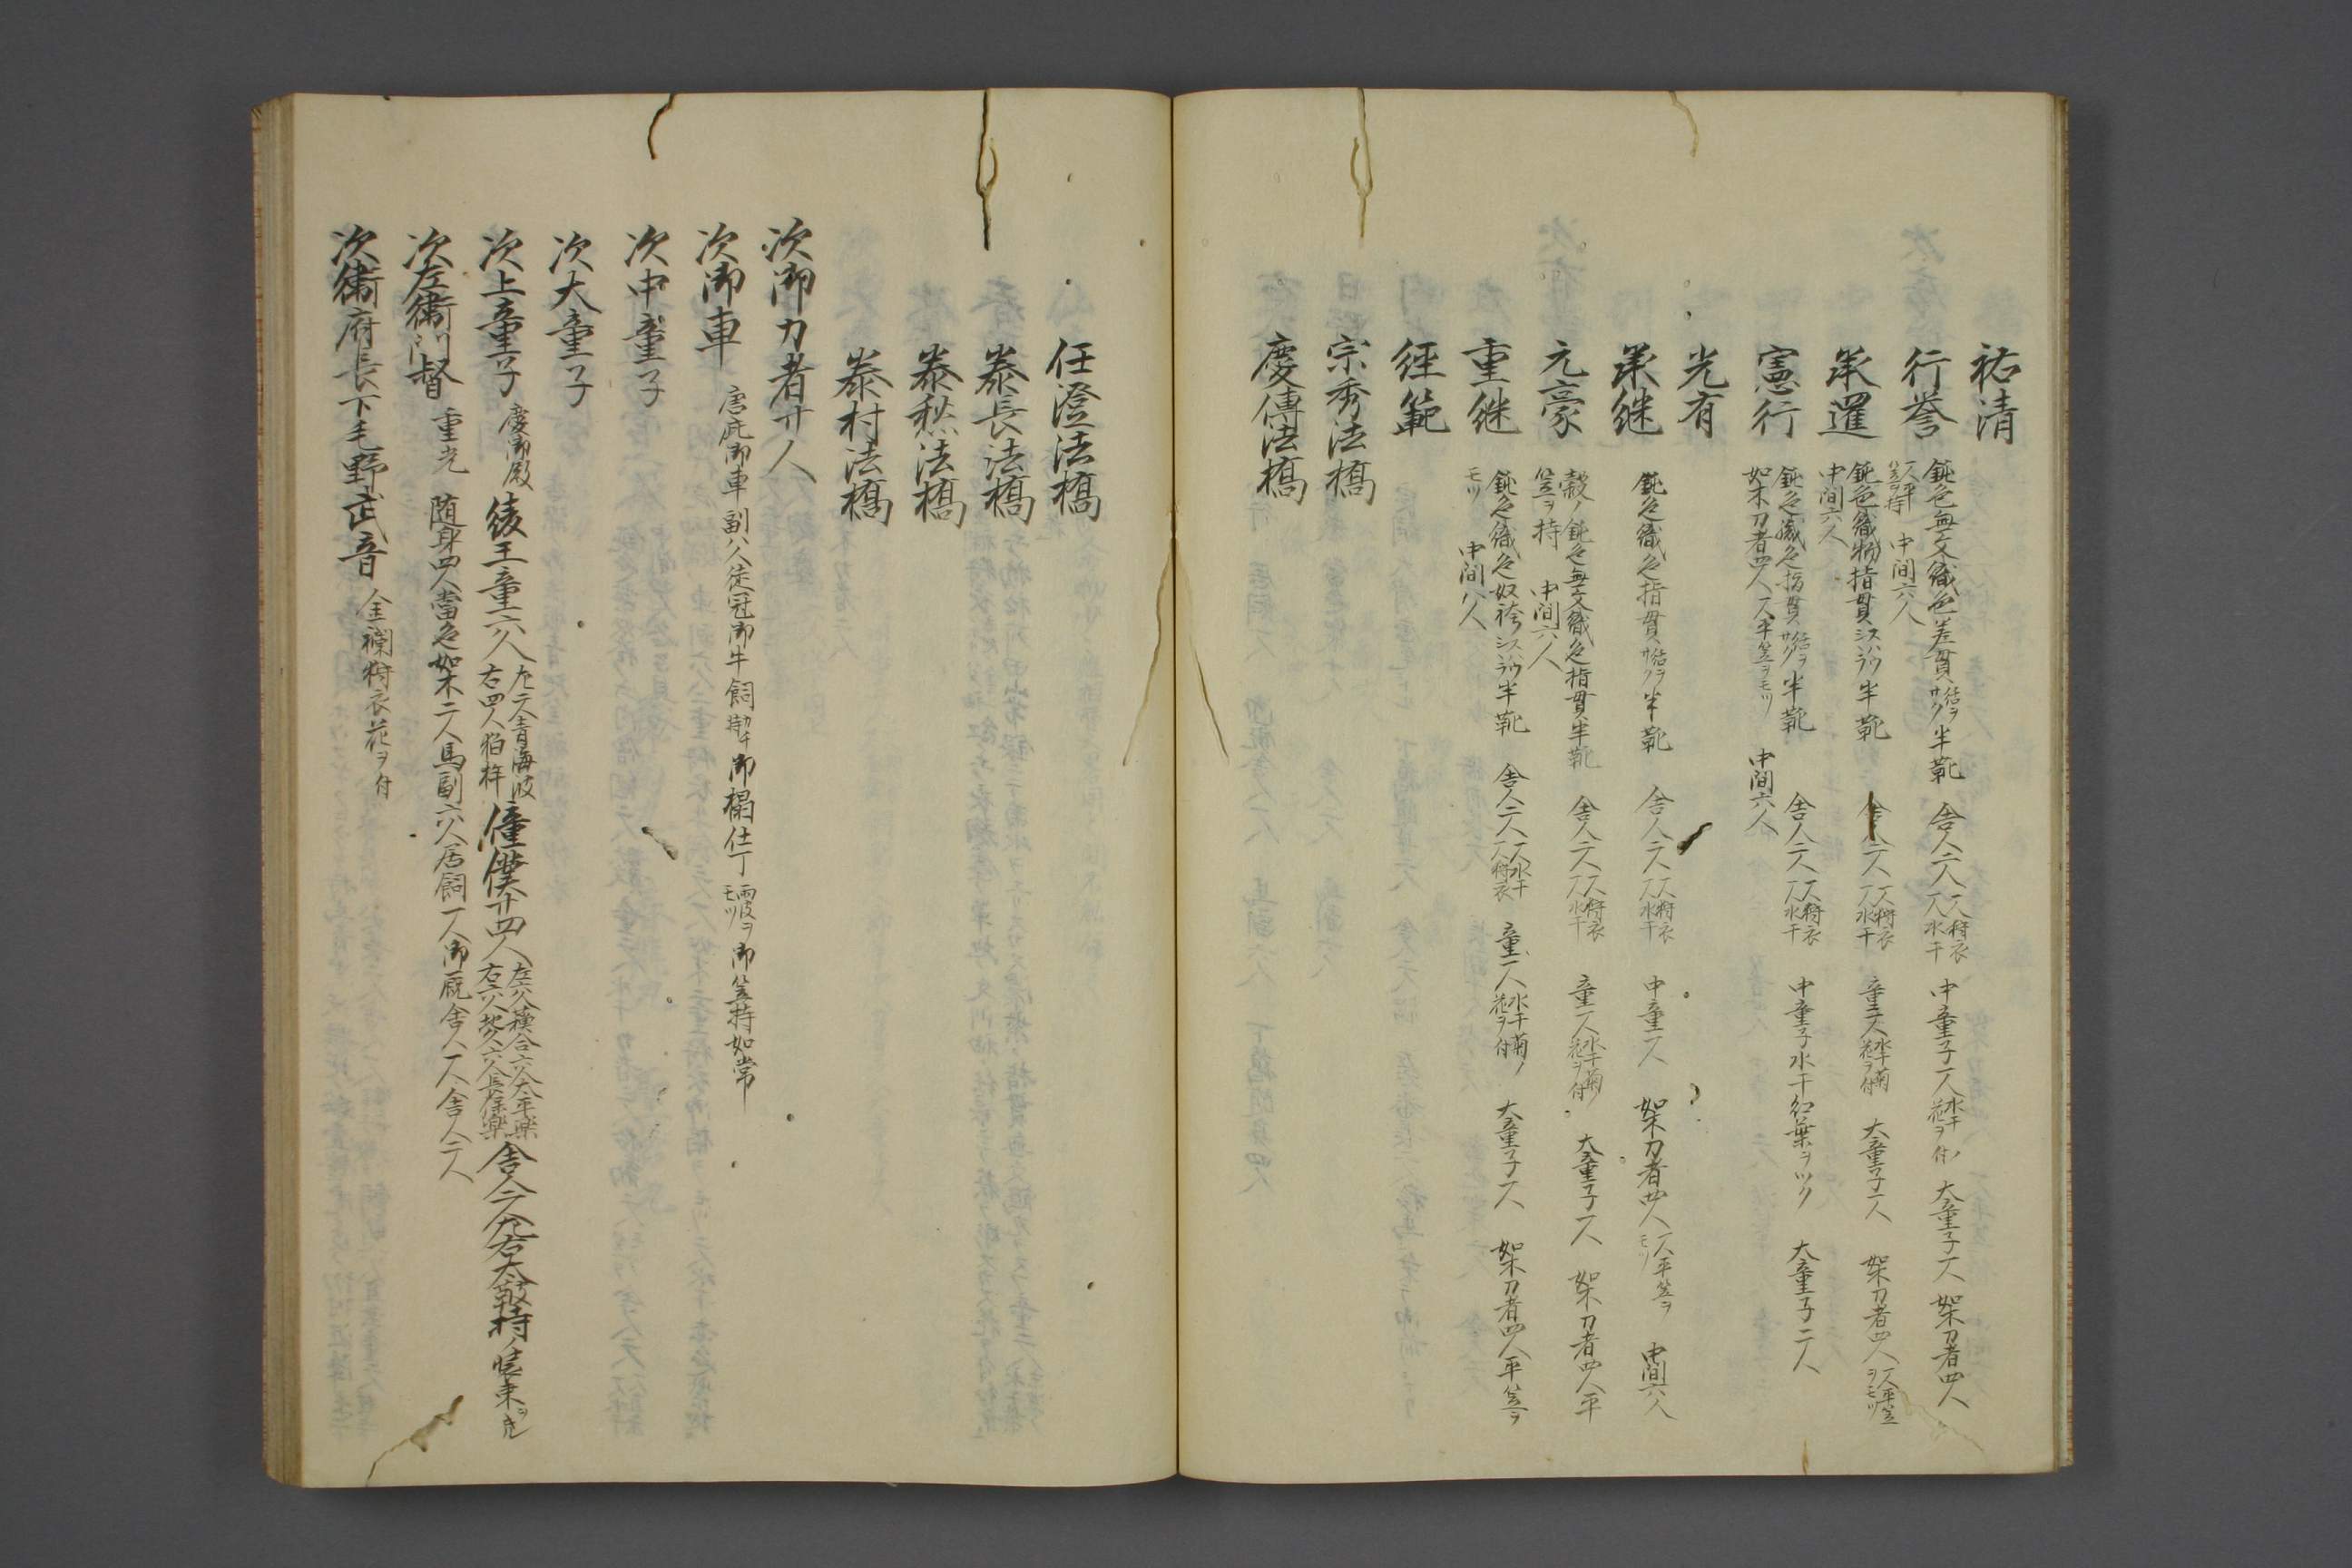 祐清
行誉 鈍色無文織色差貫 括ヲサク 半靴 舎人二人 一人狩衣 一人水干 中童子一人 水干花ヲ付 大童子一人 如木刀者四人
一人平笠ヲ持 中間六人
承暹 鈍色織物指貫 半靴 舎人二人 一人狩衣 一人水干 童一人 水干菊花ヲ付 大童子一人 如木刀者四人 一人平笠ヲモツ
中間六人
憲行 鈍色織色指貫 括ヲサク 半靴 舎人二人 一人狩衣 一人水干 中童子水干紅葉ヲツク 大童子二人
如木刀者四人 一人平笠ヲモツ 中間六人
光有
承継 鈍色織色指貫 括ヲサク 半靴 舎人二人 一人狩衣 一人水干 中童一人 如木刀者四人 一人平笠ヲモツ 中間六人
元豪 縠ノ鈍色無文織色指貫半靴 舎人二人 一人狩衣 一人水干 童一人 水干菊ノ花ヲ付 大童子一人 如木刀者四人平
笠ヲ持 中間六人
重継 鈍色織色奴袴 半靴 舎人二人 一人水干 一人狩衣 童一人 水干菊ノ花ヲ付 大童子一人 如木刀者四人平笠ヲ
モツ 中間八人
経範
宗秀法橋
慶傳法橋
任澄法橋
泰長法橋
泰愁法橋
泰村法橋
次御力者廿人
次御車 唐庇御車 副八人従冠御牛飼 御榻仕丁 雨皮ヲモツ 御笠持如常
次中童子
次大童子
次上童子 慶御殿 綾王童六人 左二人青海波 右四人狛桙 僮僕十四人 舎人二人左右大鼓持ノ装束ヲ
次左衛門督 重光 随身四人當色如木二人馬副六人居飼一人御厩舎人一人舎人二人
次衛府長下毛野武音 金襴狩衣花ヲ付